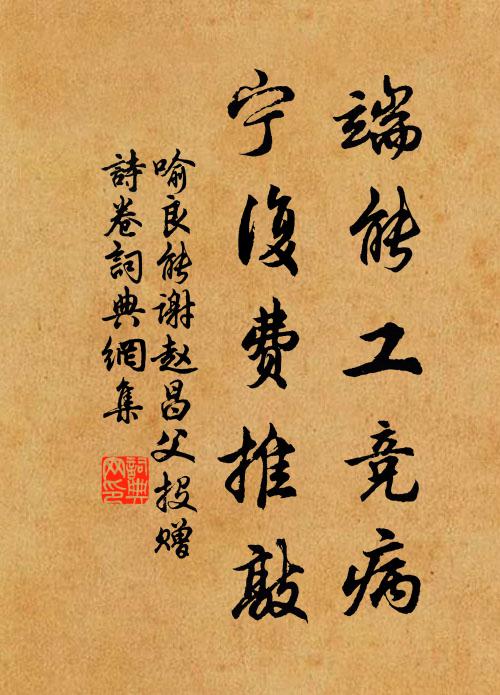 端能工竞病
宁復费推敲
喻良能谢赵昌父投赠
詩卷詞典網集
詞典
网印